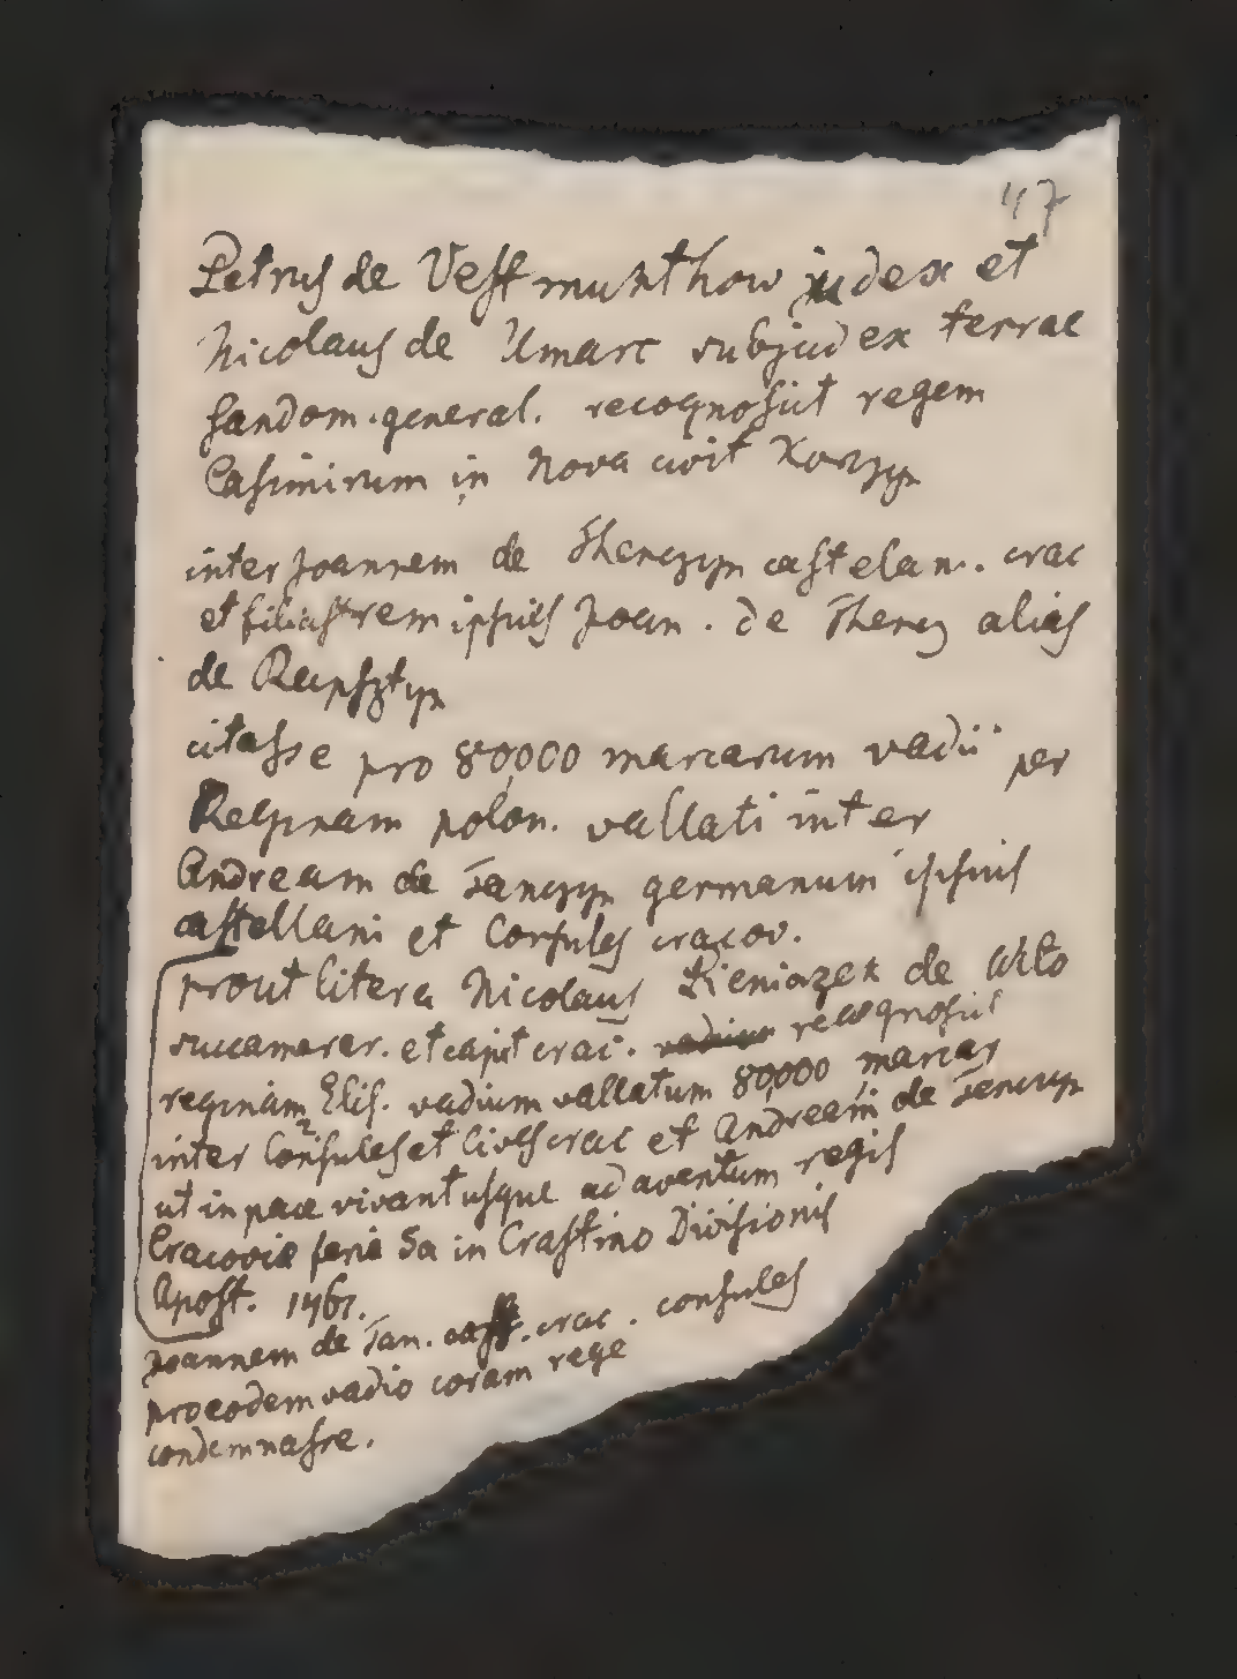 47
Petrus de Vessmunthow judex et
Nicolaus de Umarc subjudex terrae
Sandom. general. recognosut regem
Casimirum in Nova civit Korzyn
inter Joannem de Thenczyn castelan. crac
et filiastrem ipsius Joan. de Thencz alias
de Rapsztyn
citasse pro 80,000 marcarum vadii per
Reginam polon. vallati inter
Andream de Tanczyn germanum ipsius
castellani et Consules cracov.
prout litera Nicolaus Pieniazek de Wito
succamerar. et capit crac. recognosut
reginam Elis. vadium vallatum 80,000 marcas
inter Consules et Cives crac et Andream de Tenczyn
ut in pace vivant usque ad aventum regis
Cracovie feria 5a in Crastino Divisionis
Apost. 1461.
Joannem de Tan. cast. crac. consules
pro eodem vadio coram rege
condemnasse.